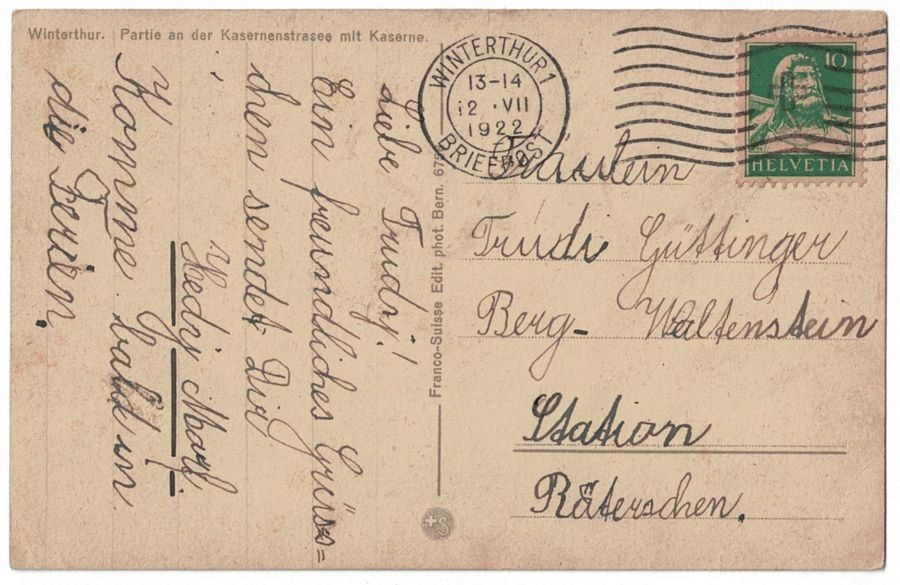 Winterthur. Partie an der Kasernenstrasee mit Kaserne.
Liebe Trudy!
Ein freundliches Grüss=
chen sendet Dir
Hedy Morf.
Komme bald in
die Ferien.
Franco-Suisse Edit. phot. Bern. 675
WINTERTHUR 1
13-14
12. VII
1922
BRIEFPOST
10
HELVETIA
Fräulein
Trudi Güttinger
Berg- Waltenstein
Station
Räterschen.